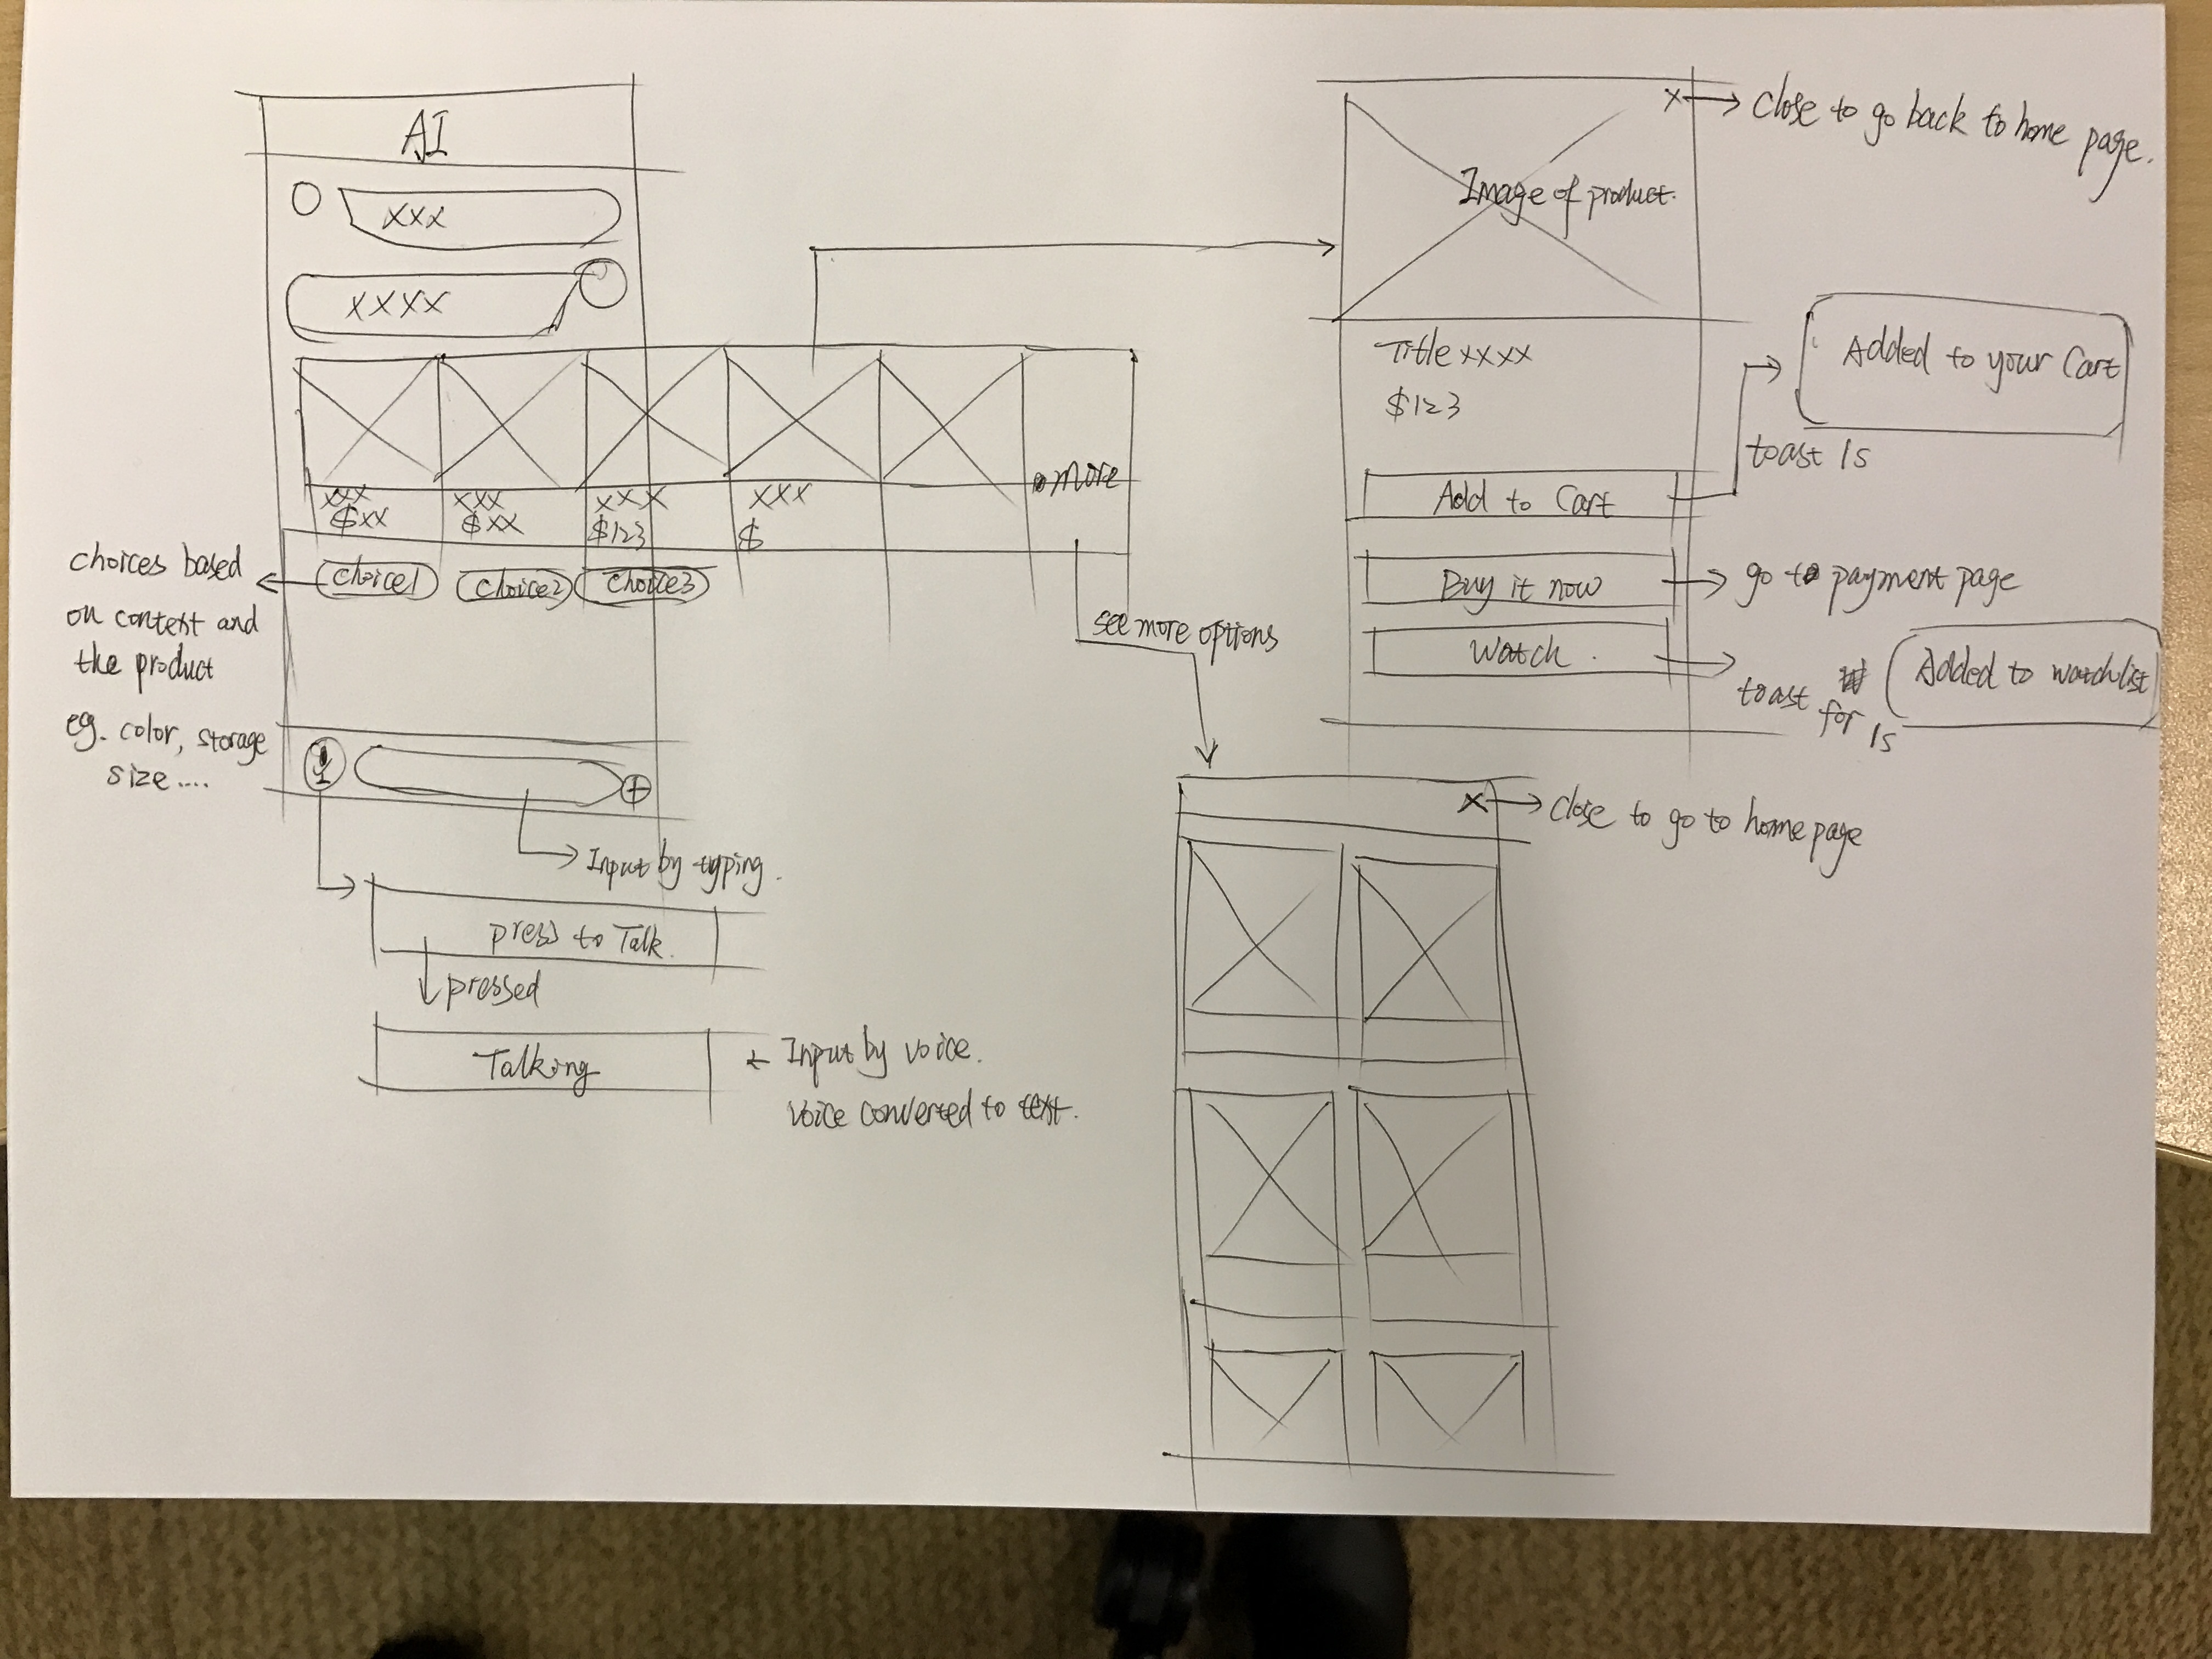 AI
xxx
xxxx
xxx
$xx
xxx
$xx
xxx
$123
xxx
$
more
choice1
choice2
choice3
choices based
on context and
the product
eg. color, storage
size....
Input by typing.
press to Talk.
pressed
Talking
Input by voice.
voice converted to text.
see more options
x
close to go back to home page.
Image of product.
Title xxxx
$123
Add to Cart
Added to your Cart
toast 1s
Buy it now
go to payment page
Watch.
toast for 1s
Added to watchlist
x
close to go to home page